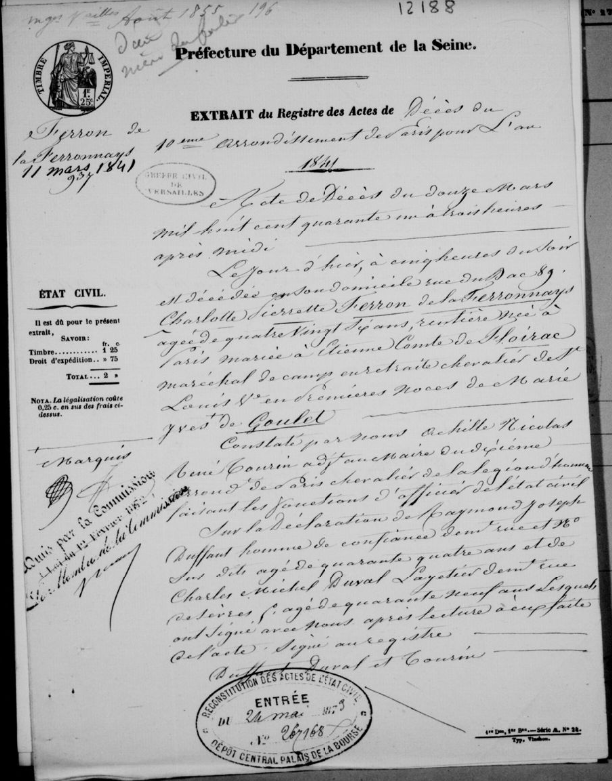 12188
Août 1855 196
Préfecture du Département de la Seine.
TIMBRE IMPÉRIAL
1f. 25c.
EXTRAIT du Registre des Actes de Décès du
10eme arrondissement de Paris pour L'an
1841
Ferron de
la Ferronnays
11 mars 1841
GREFFE CIVIL
DE
VERSAILLES
Acte de Décès du douze Mars
mil huit cent quarante un à trois heures
après midi
Le jour d'hier, à cinq heures du soir
est décédée en son domicile rue du Bac 89.
Charlotte Pierrette Ferron de la Ferronnays
agée de quatre vingt ans, rentière née à
Paris mariée à Etienne Comte de Floirac
maréchal de camp en retraite chevalier de St
Louis Ve en premières noces de Marie
Yves de Goulet
Constaté par nous Achille Nicolas
René Tourin adjt au Maire du dixième
arrondt de Paris chevalier de la légion d'honneur
faisant les fonctions d'officier de l'état civil
Sur la déclaration de Raymond Joseph
Duffaut homme de confiance demt rue et No
sus dits agé de quarante quatre ans et de
Charles Michel Duval Layetier demt rue
de Sèvres agé de quarante neuf ans Lesquels
ont signé avec nous après lecture à eux faite
de l'acte. Signé au registre
Duffaut, Duval et Tourin
ÉTAT CIVIL.
Il est dû pour le présent
extrait,
SAVOIR:
fr. c.
Timbre............ 1 25
Droit d'expédition.. » 75
TOTAL... 2 »
NOTA. La légalisation coûte
0,25 c. en sus des frais ci-
dessus.
Marquis
Admis par la Commission
Loi du 12 Février 1872
Le Membre de la Commission
RECONSTITUTION DES ACTES DE L'ÉTAT CIVIL
ENTRÉE
DU 24 mai 1873
No 267168
DÉPÔT CENTRAL PALAIS DE LA BOURSE
1re Don, 1er Bau.—Série A, No 28.
Typ. Vinchon.